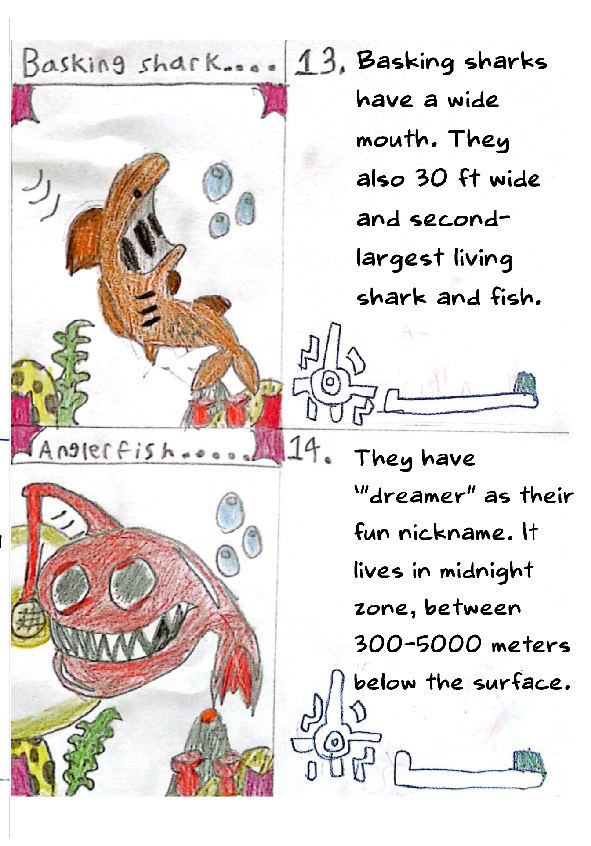 Basking shark....
13. Basking sharks
have a wide
mouth. They
also 30 ft wide
and second-
largest living
shark and fish.
Anglerfish......
14. They have
'"dreamer" as their
fun nickname. It
lives in midnight
zone, between
300-5000 meters
below the surface.